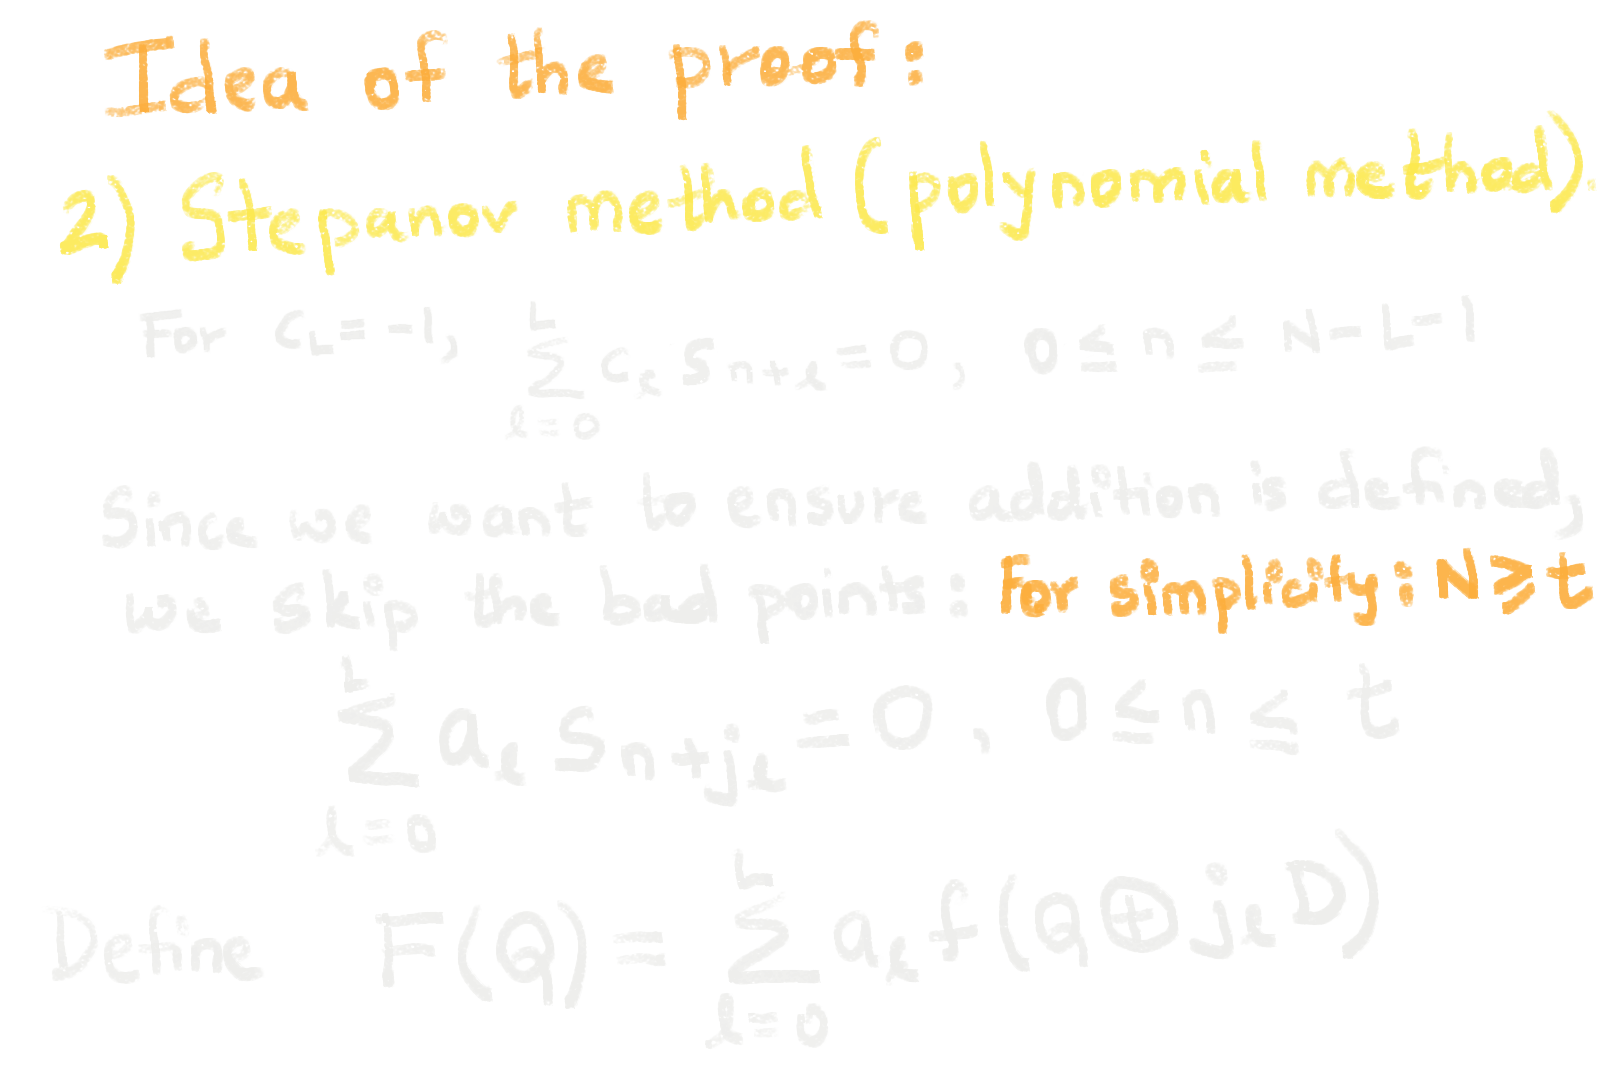 Idea of the proof:
2) Stepanov method (polynomial method).
For C_L = -1, \sum_{l=0}^{L} C_l S_{n+l} = 0, 0 ≤ n ≤ N-L-1
Since we want to ensure addition is defined,
we skip the bad points: For simplicity: N ≥ t
\sum_{l=0}^{L} a_l S_{n+j_l} = 0, 0 ≤ n ≤ t
Define F(Q) = \sum_{l=0}^{L} a_l f(Q ⊕ j_l D)